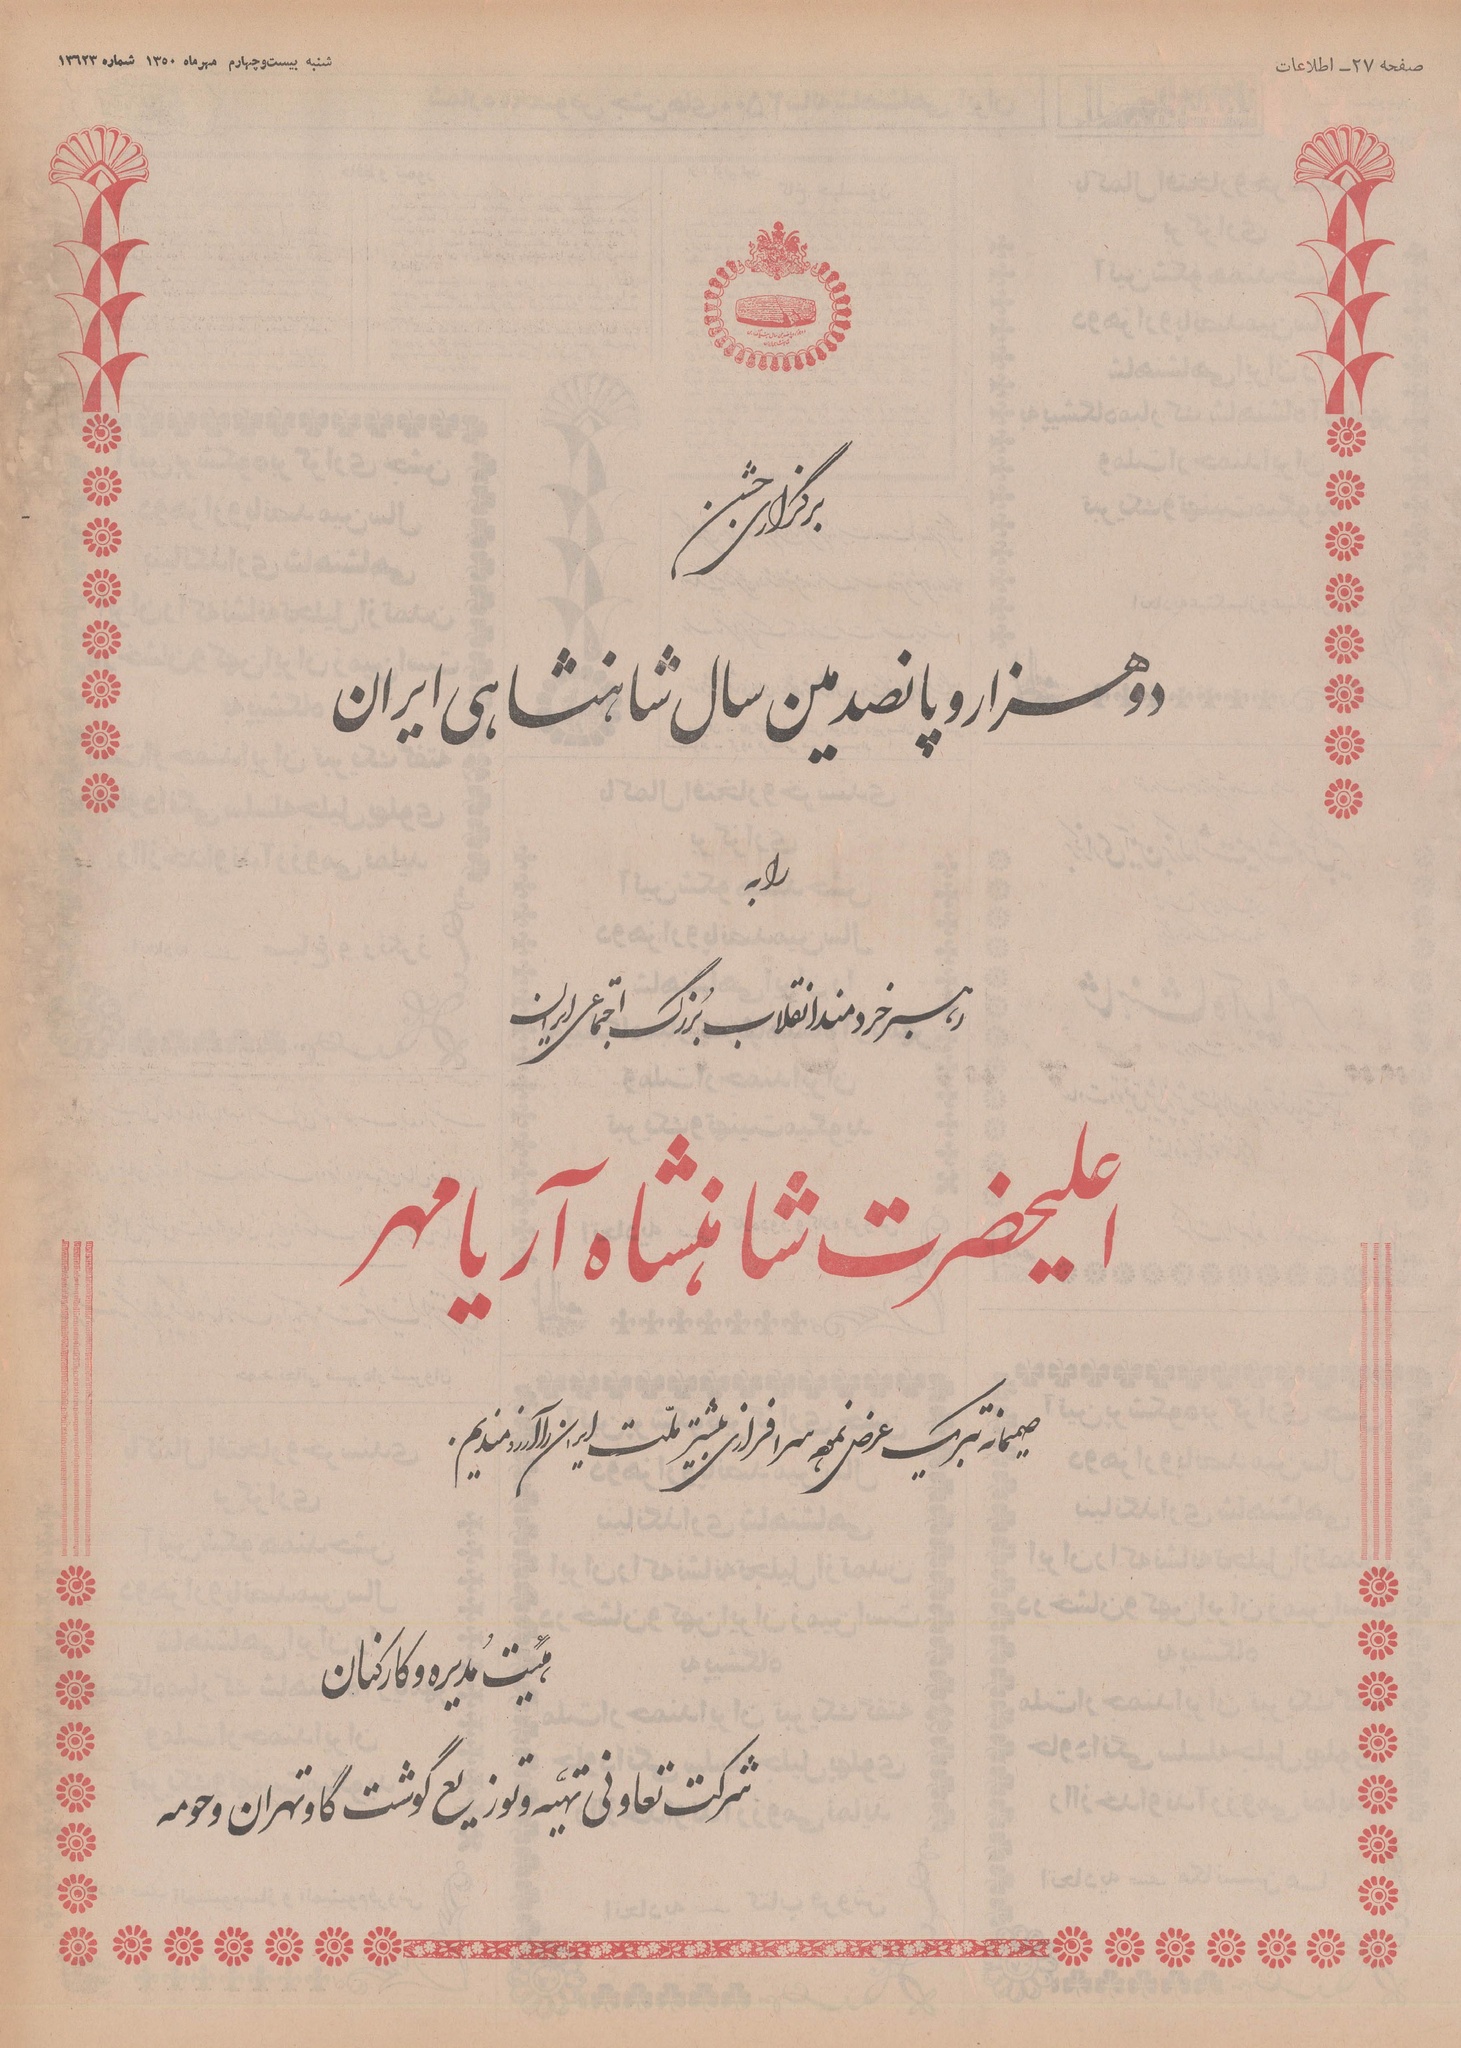 صفحه ۲۷ــ اطلاعات
شنبه بیست‌وچهارم مهرماه ۱۳۵۰ شماره ۱۳۶۲۳
برگزاری جشن
دوهزار و پانصدمین سال شاهنشاهی ایران
را به
رهبر خردمند انقلاب بُزرگ اجتماعی ایران
اعلیحضرت شاهنشاه آریامهر
صمیمانه تبریک عرض نموده سرافرازی بیشتر ملّت ایران را آرزومندیم.
هیئت مُدیره و کارکنان
شرکت تعاونی تهیّه و توزیع گوشت گاو تهران و حومه